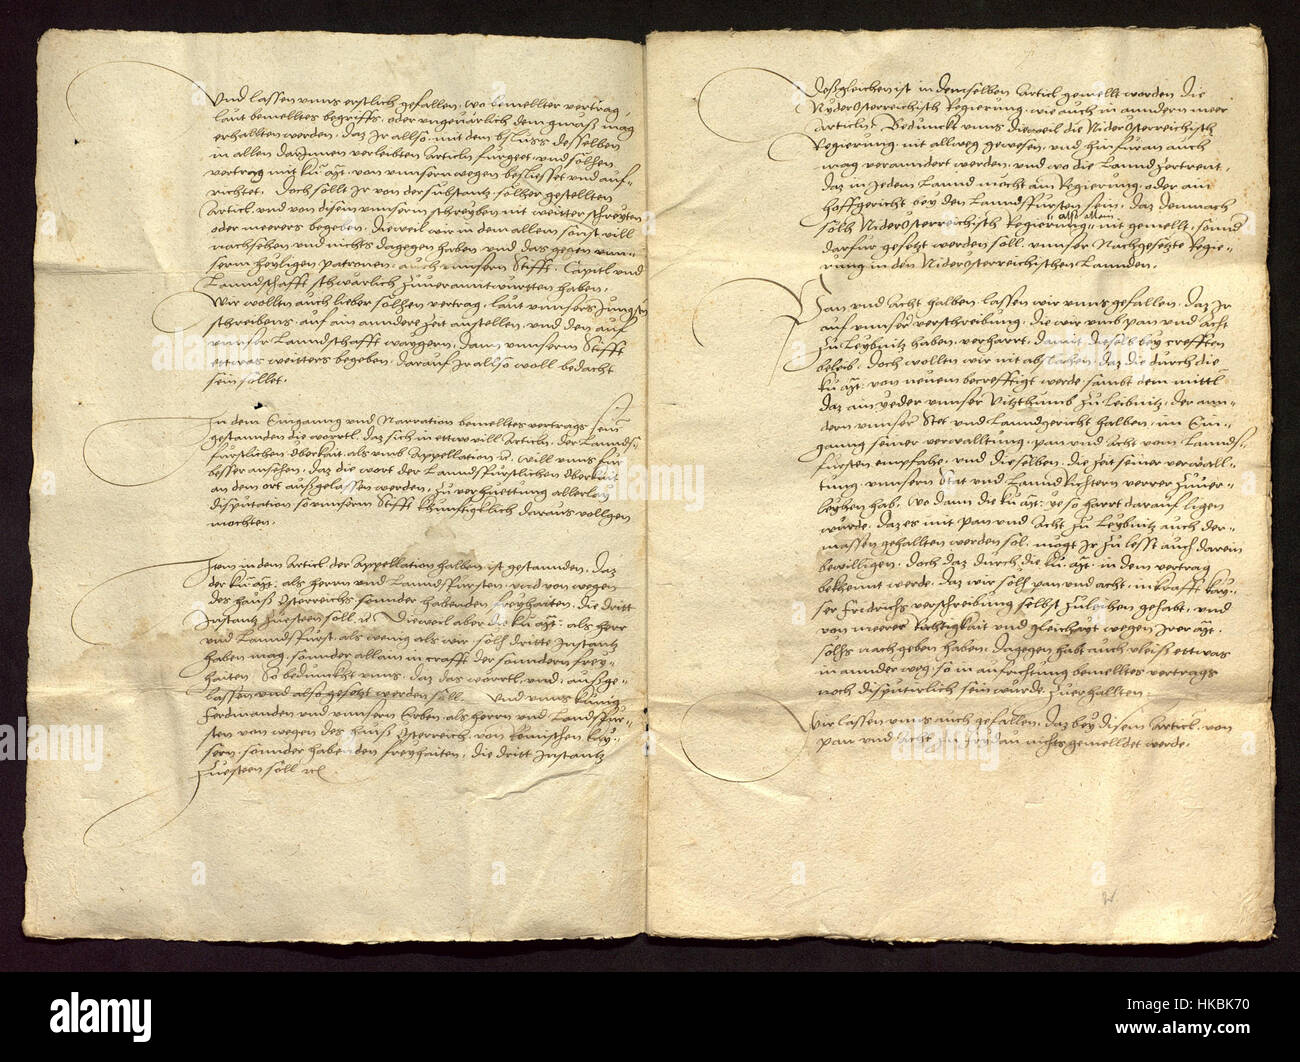 Und lassen unns erstlich gefallen, wo bemellter vertrag,
laut bemelltes begriffs, oder ungevärlich dem gmäß mag
erhallten werden, daz Ir allso mit dem bschluss desselben
in allen darInnen verleibten Articln fürgeet, und solhen
vertrag mit von unnsern wegen beschliesset und auf-
richtet. Doch söllt Ir von der substantz solher gestellten
Articl, und von disem unnserm schreyben nit weitter schreytten
oder merers begeben, dieweil wir in dem allem sonst vill
nachsehen und nichts dagegen haben, und das gegen unn-
serm heyligen patronen, auch unnserm Stifft, Capitl und
Lanndschafft schwärlich zuverantwurtten haben.
Wir wollten auch lieber solhen vertrag, laut unnsers Jungsten
schreibens, auf ain anndere Zeit anstellen, und den auf
unnser Lanndschafft waygern, dann unnserm Stifft
ettwas weitters begeben, darauf Ir allso woll bedacht
sein sollet.
In dem Einganng und Narration bemelltes vertrags sein
gestannden die wörttl, daz sich in ettwevill Articln, der Lannds-
fürstlichen Oberkait, als umb Appellation &c. Will unns für
besser ansehen, daz die wort der Lanndsfürstlichen Oberkait
an dem ort außgelassen werden, zu verhuettung allerlay
disputation so unnserm Stifft khunfftigklich daraus vollgen
möchten.
Item in dem Articl der Appellation halben ist gestannden, daz
der als herrn und Lanndsfürsten, und von wegen
des hauß Österreichs sonnder habenden freyhaiten, die dritt
Instantz zuesteen söll &c. Dieweil aber die als herr
und Lanndsfürst, als wenig als wir, solh dritte Instantz
haben mag, sonnder allain in crafft der sonndern frey-
haiten. So bedunckht unns, daz das wörttl, und, außge-
lassen, und also gesetzt werden söll. Und unns Künig
Ferdinanden und unnsern Erben, als herrn und Landsfür-
sten von wegen des hauß Österreich, von Römischen Kay-
sern, sonnder habenden freyhaiten, die dritt Instantz
zuesteen söll &c.
Deßgleichen ist in demselben Articl gemellt worden, die
Nyderösterreichisch Regierung, wie auch in anndern mer
articln. Bedunckt unns dieweil die Niderösterreichisch
Regierung nit allweg gewesen, und hinfüran auch
mag verenndert werden, und wo die Lannd zertrent,
daz in Jedem Lannd nicht ain Regierung, oder ain
hoffgericht bey dem Lanndsfürsten sein, daz demnach
solh Niderösterreichisch Regierung also allain nit gemellt, sonnder
darfür gesetzt werden söll, unnser Nachgesetzte Regie-
rung in den Niderösterreichischen Lannden.
Pan und Acht halben, lassen wir unns gefallen, daz Ir
auf unnser verschreibung, die wir umb pan und acht
zu Leybnitz haben, verharrt, damit dieselb bey crefften
beleib. Doch wollen wir nit abschlahen, daz die durch die
von neuem becrefftigt werde, sambt dem mittl
daz ain yeder unnser Vitzthumb zu Leibnitz, der ann-
dern unnser Stet und Lanndgericht halben, im Ein-
ganng seiner verwalltung, pan und Acht vom Lannds-
fürsten empfahe, und dieselben, die Zeit seiner verwall-
tung, unnsern Stat und LanndRichtern verrer zuver-
leyhen hab. Wo dann die yeso hart darauf ligen
wurde, daz es mit pan und Acht zu Leybnitz auch der-
massen gehallten werden sol, mügt Ir zu lesst auch darein
bewilligen, doch daz durch die in dem vertrag
bekhennt werde, daz wir solh pan und acht, in krafft Kay-
ser Fridrichs verschreibung selbst zuleihen gehabt, und
von merer Richtigkeit und gleichayt wegen Irer
solhs nachgeben haben, dagegen habt auch vleiß ettwas
in annder weg, so in aufrichtung bemelltes vertrags
noch disputierlich sein wurde, zuerhallten.
Wir lassen unns auch gefallen, daz bey disem Articl, von
pan und Acht zu Frydau nichts gemelldet werde.
alamy stock photo
HKBK70
www.alamy.com